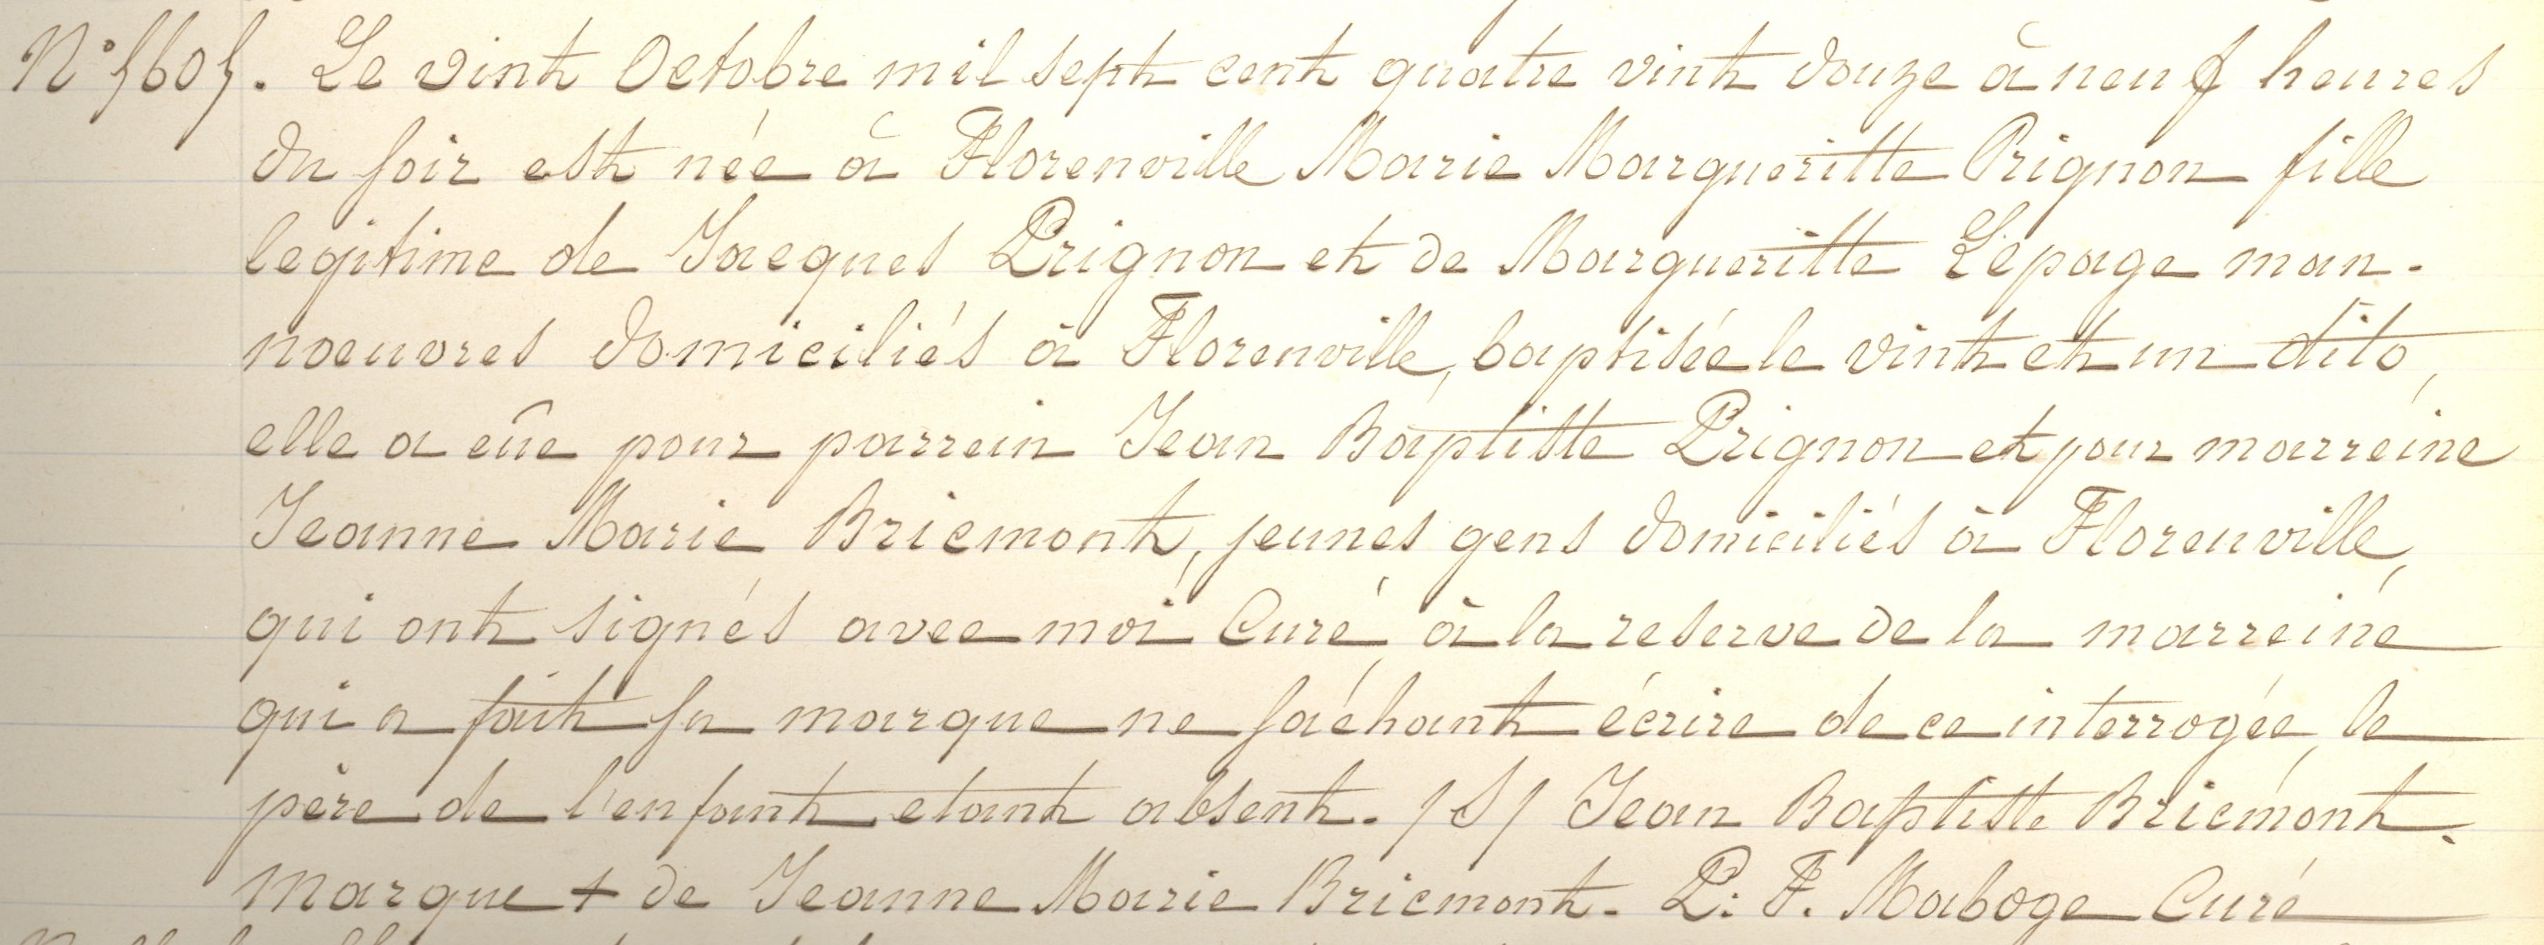 N° 5605. Le vint Octobre mil sept cent quatre vint douze à neuf heures
du soir est née à Florenville Marie Margueritte Prignon fille
legitime de Jacques Prignon et de Margueritte Lepage man-
noeuvres domiciliés à Florenville, baptisée le vint et un dito,
elle a eûe pour parrein Jean Baptiste Prignon et pour marreine
Jeanne Marie Bricmont, jeunes gens domiciliés à Florenville,
qui ont signés avec moi Curé, à la reserve de la marreine
qui a fait sa marque ne sachant écrire de ce interrogée, le
père de l'enfant etant absent. /S/ Jean Baptiste Bricmont.
Marque + de Jeanne Marie Bricmont. P: F. Maboge Curé